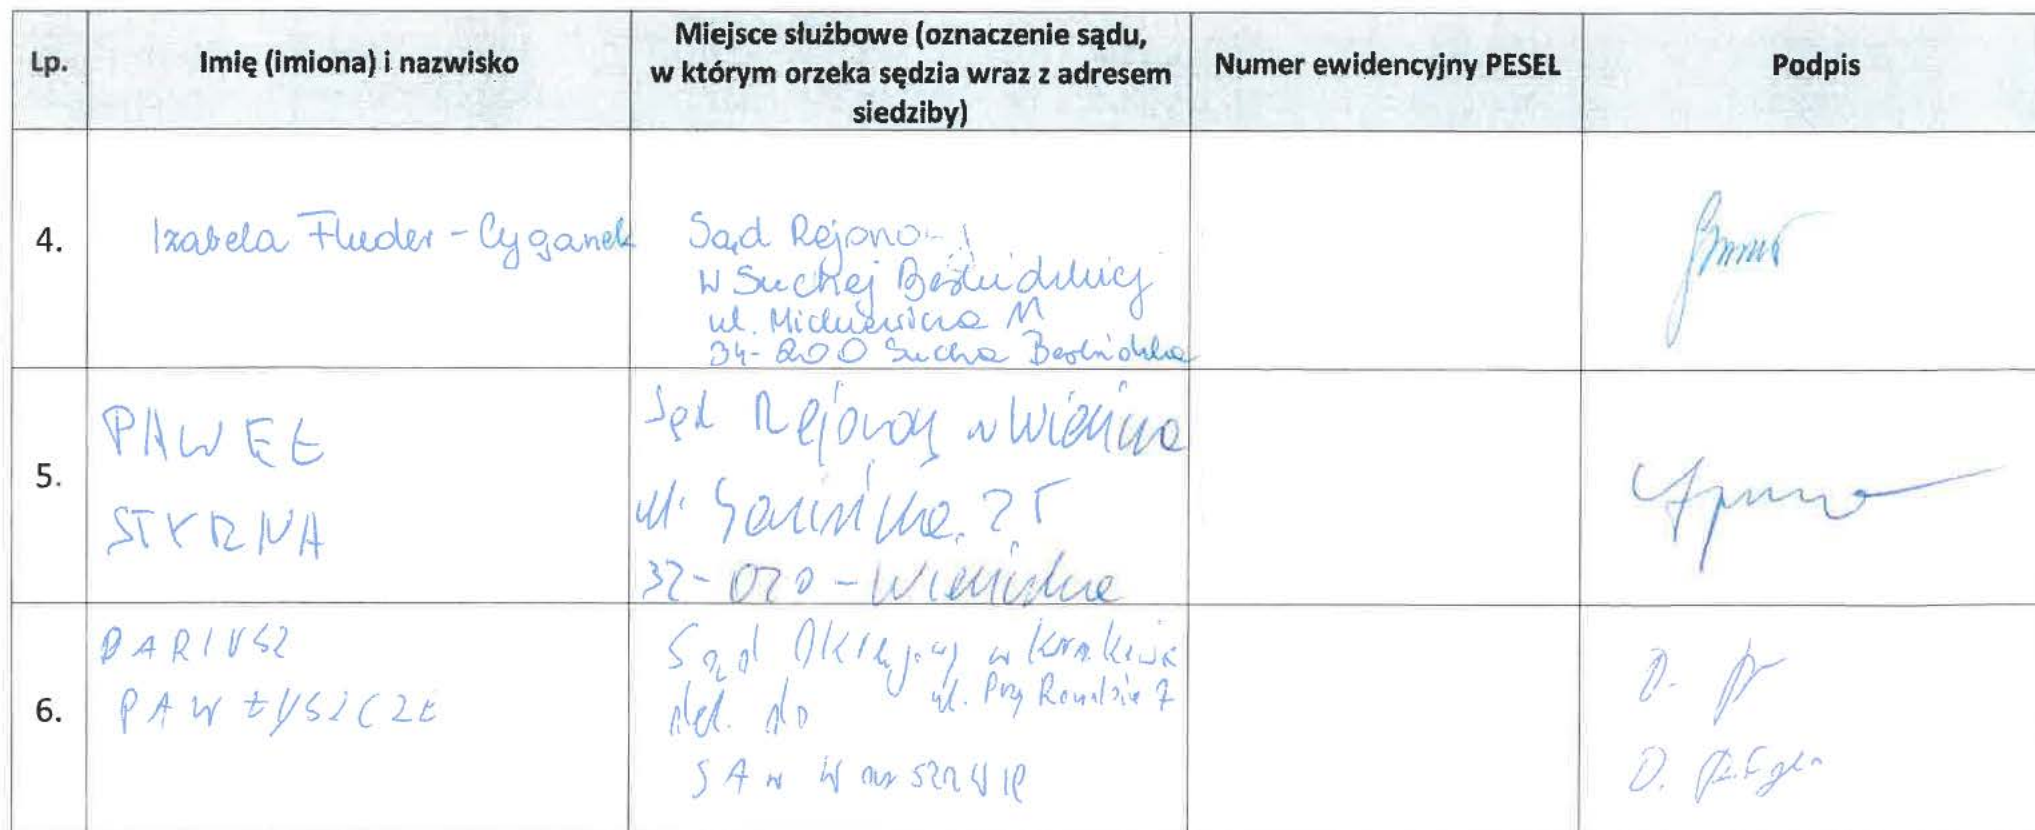 Lp.
Imię (imiona) i nazwisko
Miejsce służbowe (oznaczenie sądu,
w którym orzeka sędzia wraz z adresem
siedziby)
Numer ewidencyjny PESEL
Podpis
4.
Izabela Fluder-Cyganek
Sąd Rejonowy
w Suchej Beskidzkiej
ul. Mickiewicza 11
34-200 Sucha Beskidzka
5.
PAWEŁ
STYRNA
Sąd Rejonowy w Wieliczka
ul.
32-020-Wieliczka
6.
DARIUSZ
PAWŁYSZCZE
Sąd Okręgowy w Krakowie
ul. Przy Rondzie 7
del. do
SA w Warszawie